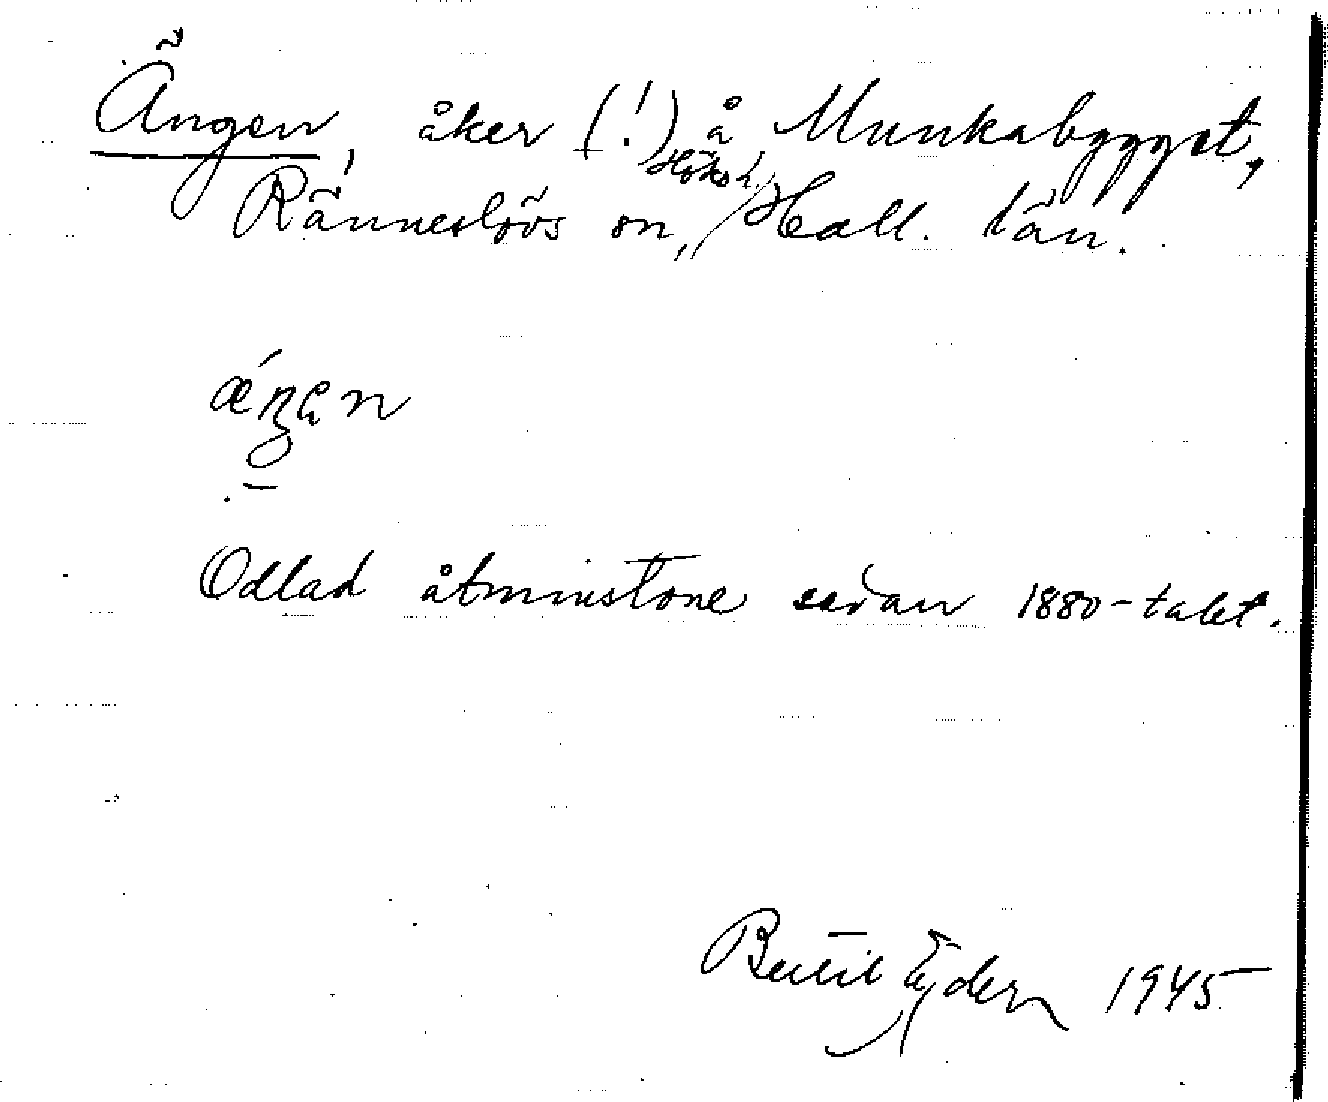 Ängen, åker (!) å Munkabygget,
Ränneslövs sn, Höks h., Hall. län.
Odlad åtminstone sedan 1880-talet.
Bertil Ejder 1945